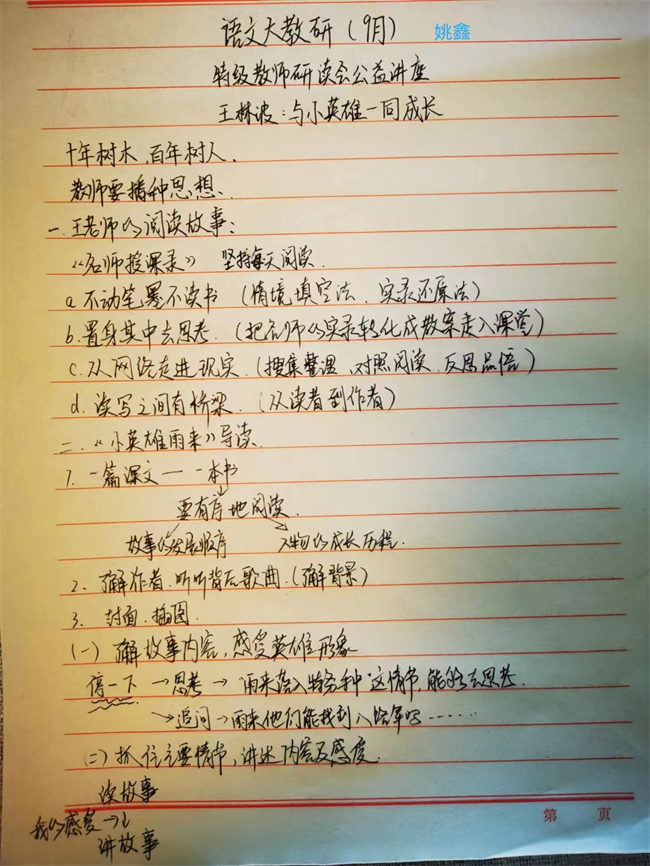 语文大教研（9月） 姚鑫
特级教师研读会公益讲座
王林波：与小英雄一同成长
十年树木，百年树人．
教师要播种思想．
一．王老师的阅读故事：
《名师授课录》 坚持每天阅读．
a．不动笔墨不读书（情境填空法．实录还原法）
b．置身其中去思考．（把名师的实录转化成教案走入课堂）
c．从网络走进现实．（搜集整理．对照阅读．反思品悟）
d．读写之间有桥梁．（从读者到作者）
二．《小英雄雨来》导读．
1．一篇课文——一本书
要有序地阅读．
故事的发展顺序 人物的成长历程．
2．了解作者．听听背后歌曲．（了解背景）
3．封面．插图．
（一）了解故事内容，感受英雄形象
停一下→思考→"雨来落入特务种"这情节，能够去思考．
→追问→雨来他们能找到八路军吗……
（二）抓住主要情节，讲述内容及感度．
读故事
我的感受→↓
讲故事
第 页